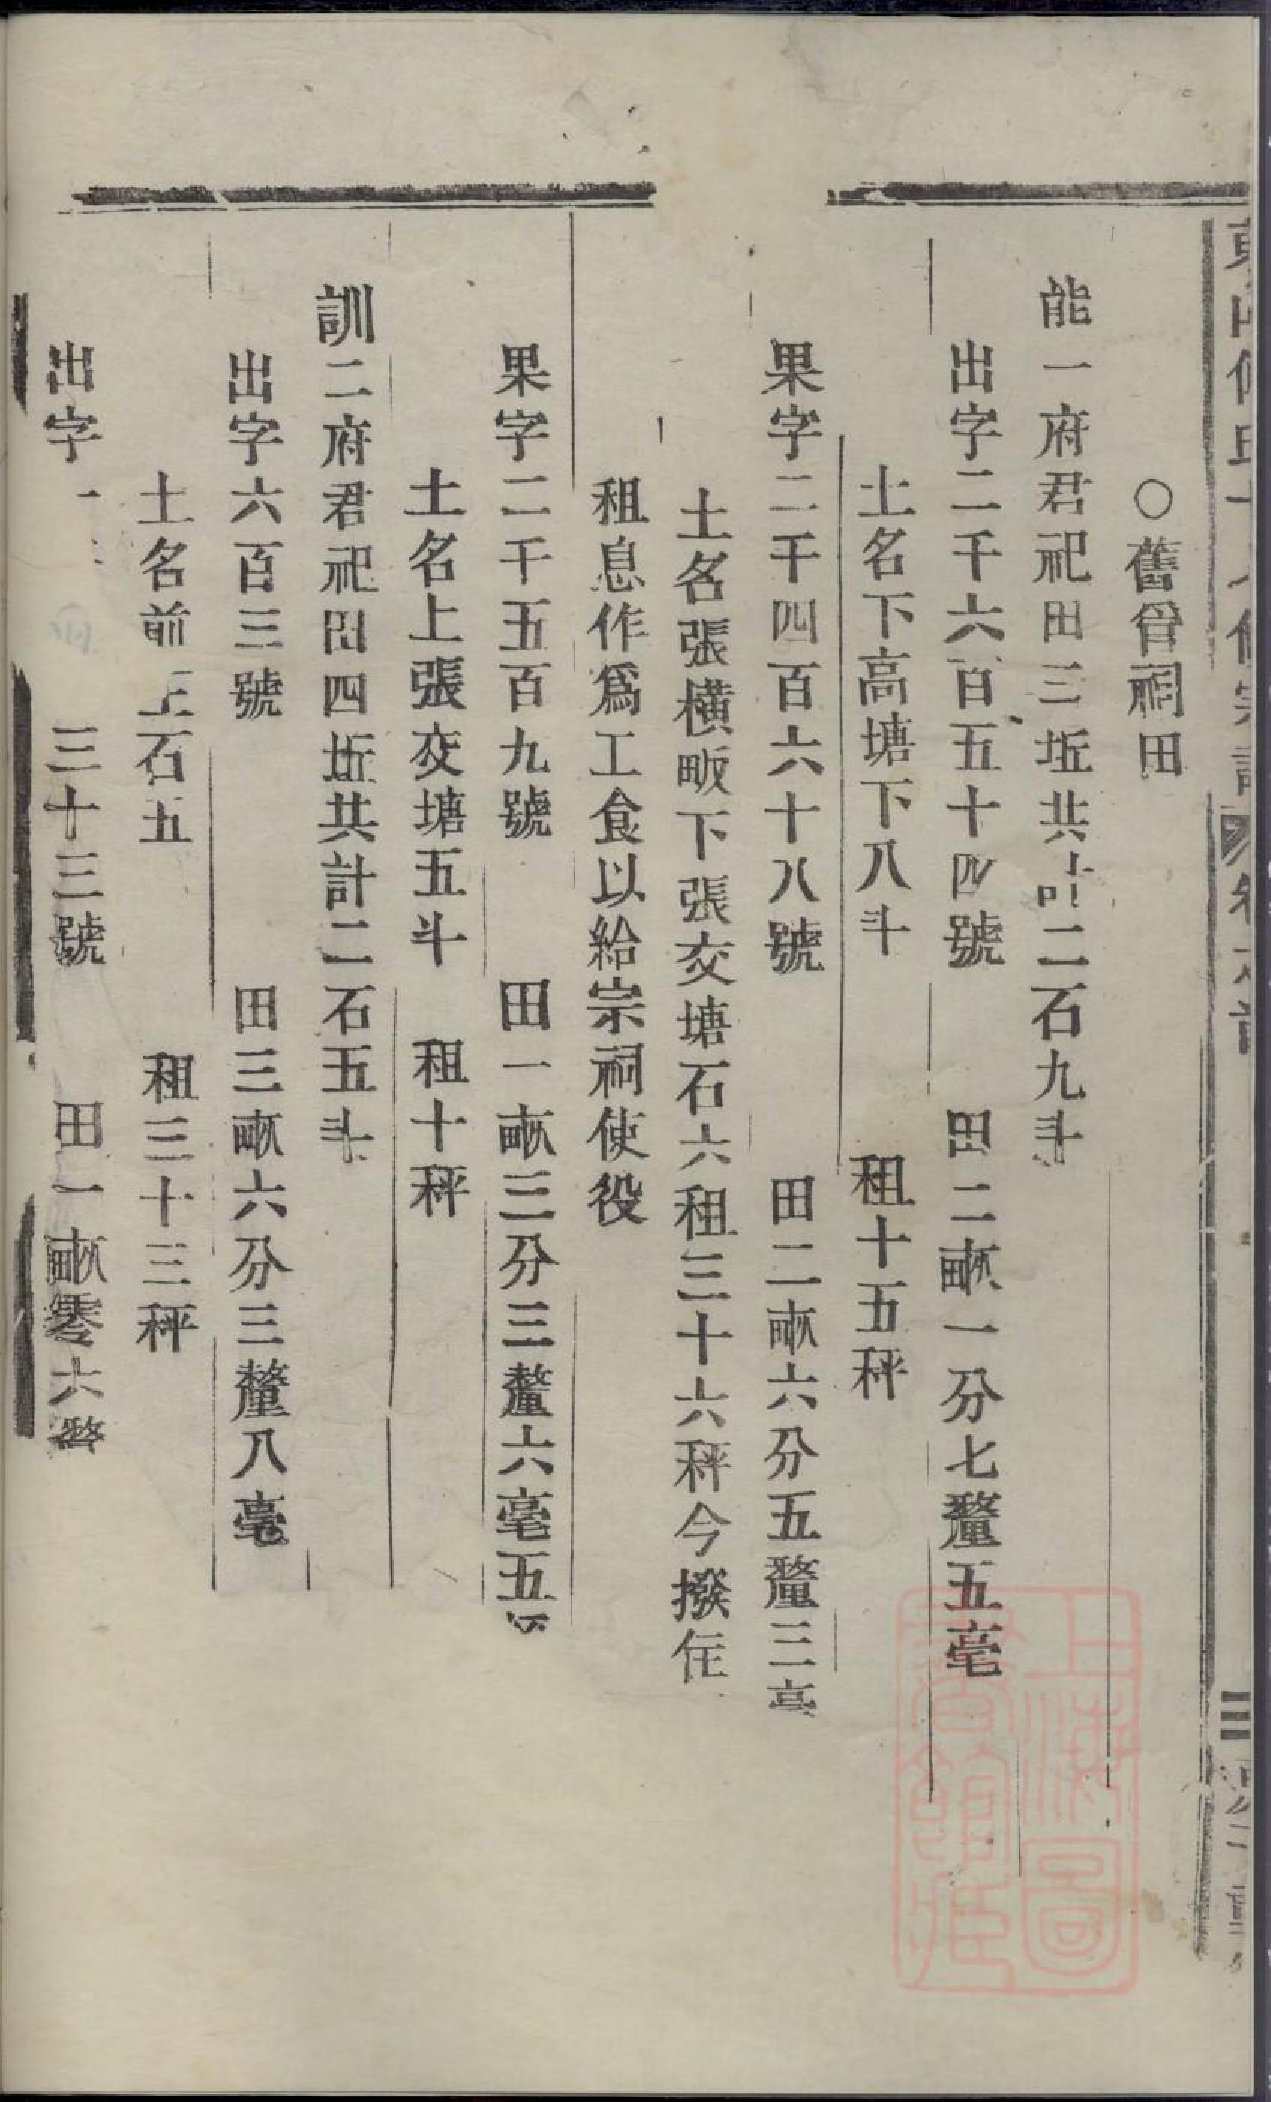 ○舊管祠田
能一府君祀田三坵共計二石九斗
出字二千六百五十四號 田二畝一分七釐五毫
土名下高塘下八斗 租十五秤
果字二千四百六十八號 田二畝六分五釐三毫
土名張橫畈下張交塘石六租三十六秤今撥任
租息作爲工食以給宗祠使役
果字二千五百九號 田一畝三分三釐六毫五
土名上張交塘五斗 租十秤
訓二府君祀田四坵共計二石五斗
出字六百三號 田三畝六分三釐八毫
土名前 石五 租三十三秤
出字 三十三號 田一畝零六釐
上海圖書館藏